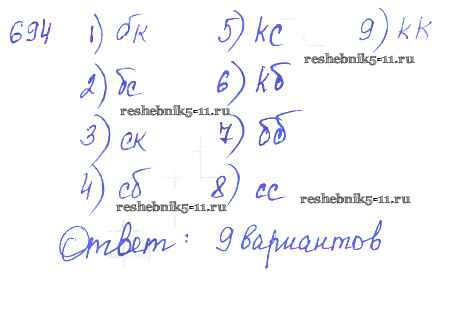 694 1) бк 5) кс 9) кк
reshebnik5-11.ru
2) бс 6) кб
reshebnik5-11.ru
3) ск 7) бб
4) сб 8) сс
reshebnik5-11.ru reshebnik5-11.ru
Ответ: 9 вариантов